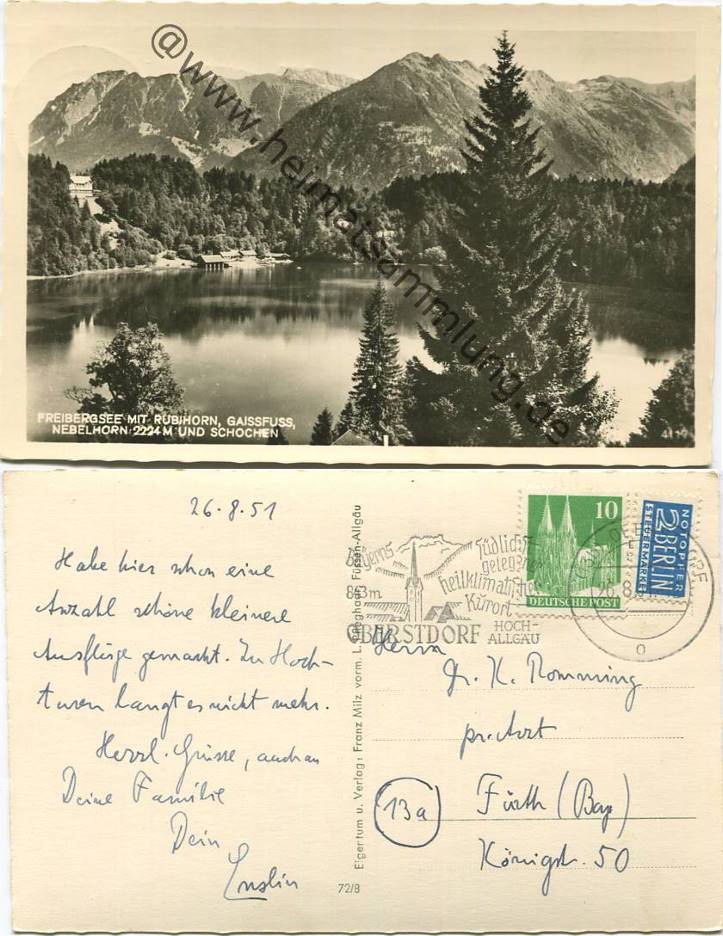 @www.heimatsammlung.de
FREIBERGSEE MIT RUBIHORN, GAISSFUSS,
NEBELHORN 2224 M UND SCHOCHEN
26.8.51
Habe hier schon eine
Anzahl schöne kleinere
Ausflüge gemacht. Zu Hoch-
turen langt es nicht mehr.
Herzl. Grüsse, auch an
Deine Familie
Dein
Enslin
Eigentum u. Verlag: Franz Milz vorm. L. Stieghans Füssen-Allgäu
72/8
Bayerns südlichst
gelegener
843 m heilklimatischer
Kurort
OBERSTDORF HOCH-
ALLGÄU
10
DEUTSCHE POST
NOTOPFER
2 BERLIN
STEUERMARKE
OBERSTDORF
26.8.51
a
Herrn
Dr. K. Romming
pr. Arzt
13a
Fürth (Bay)
Königstr. 50